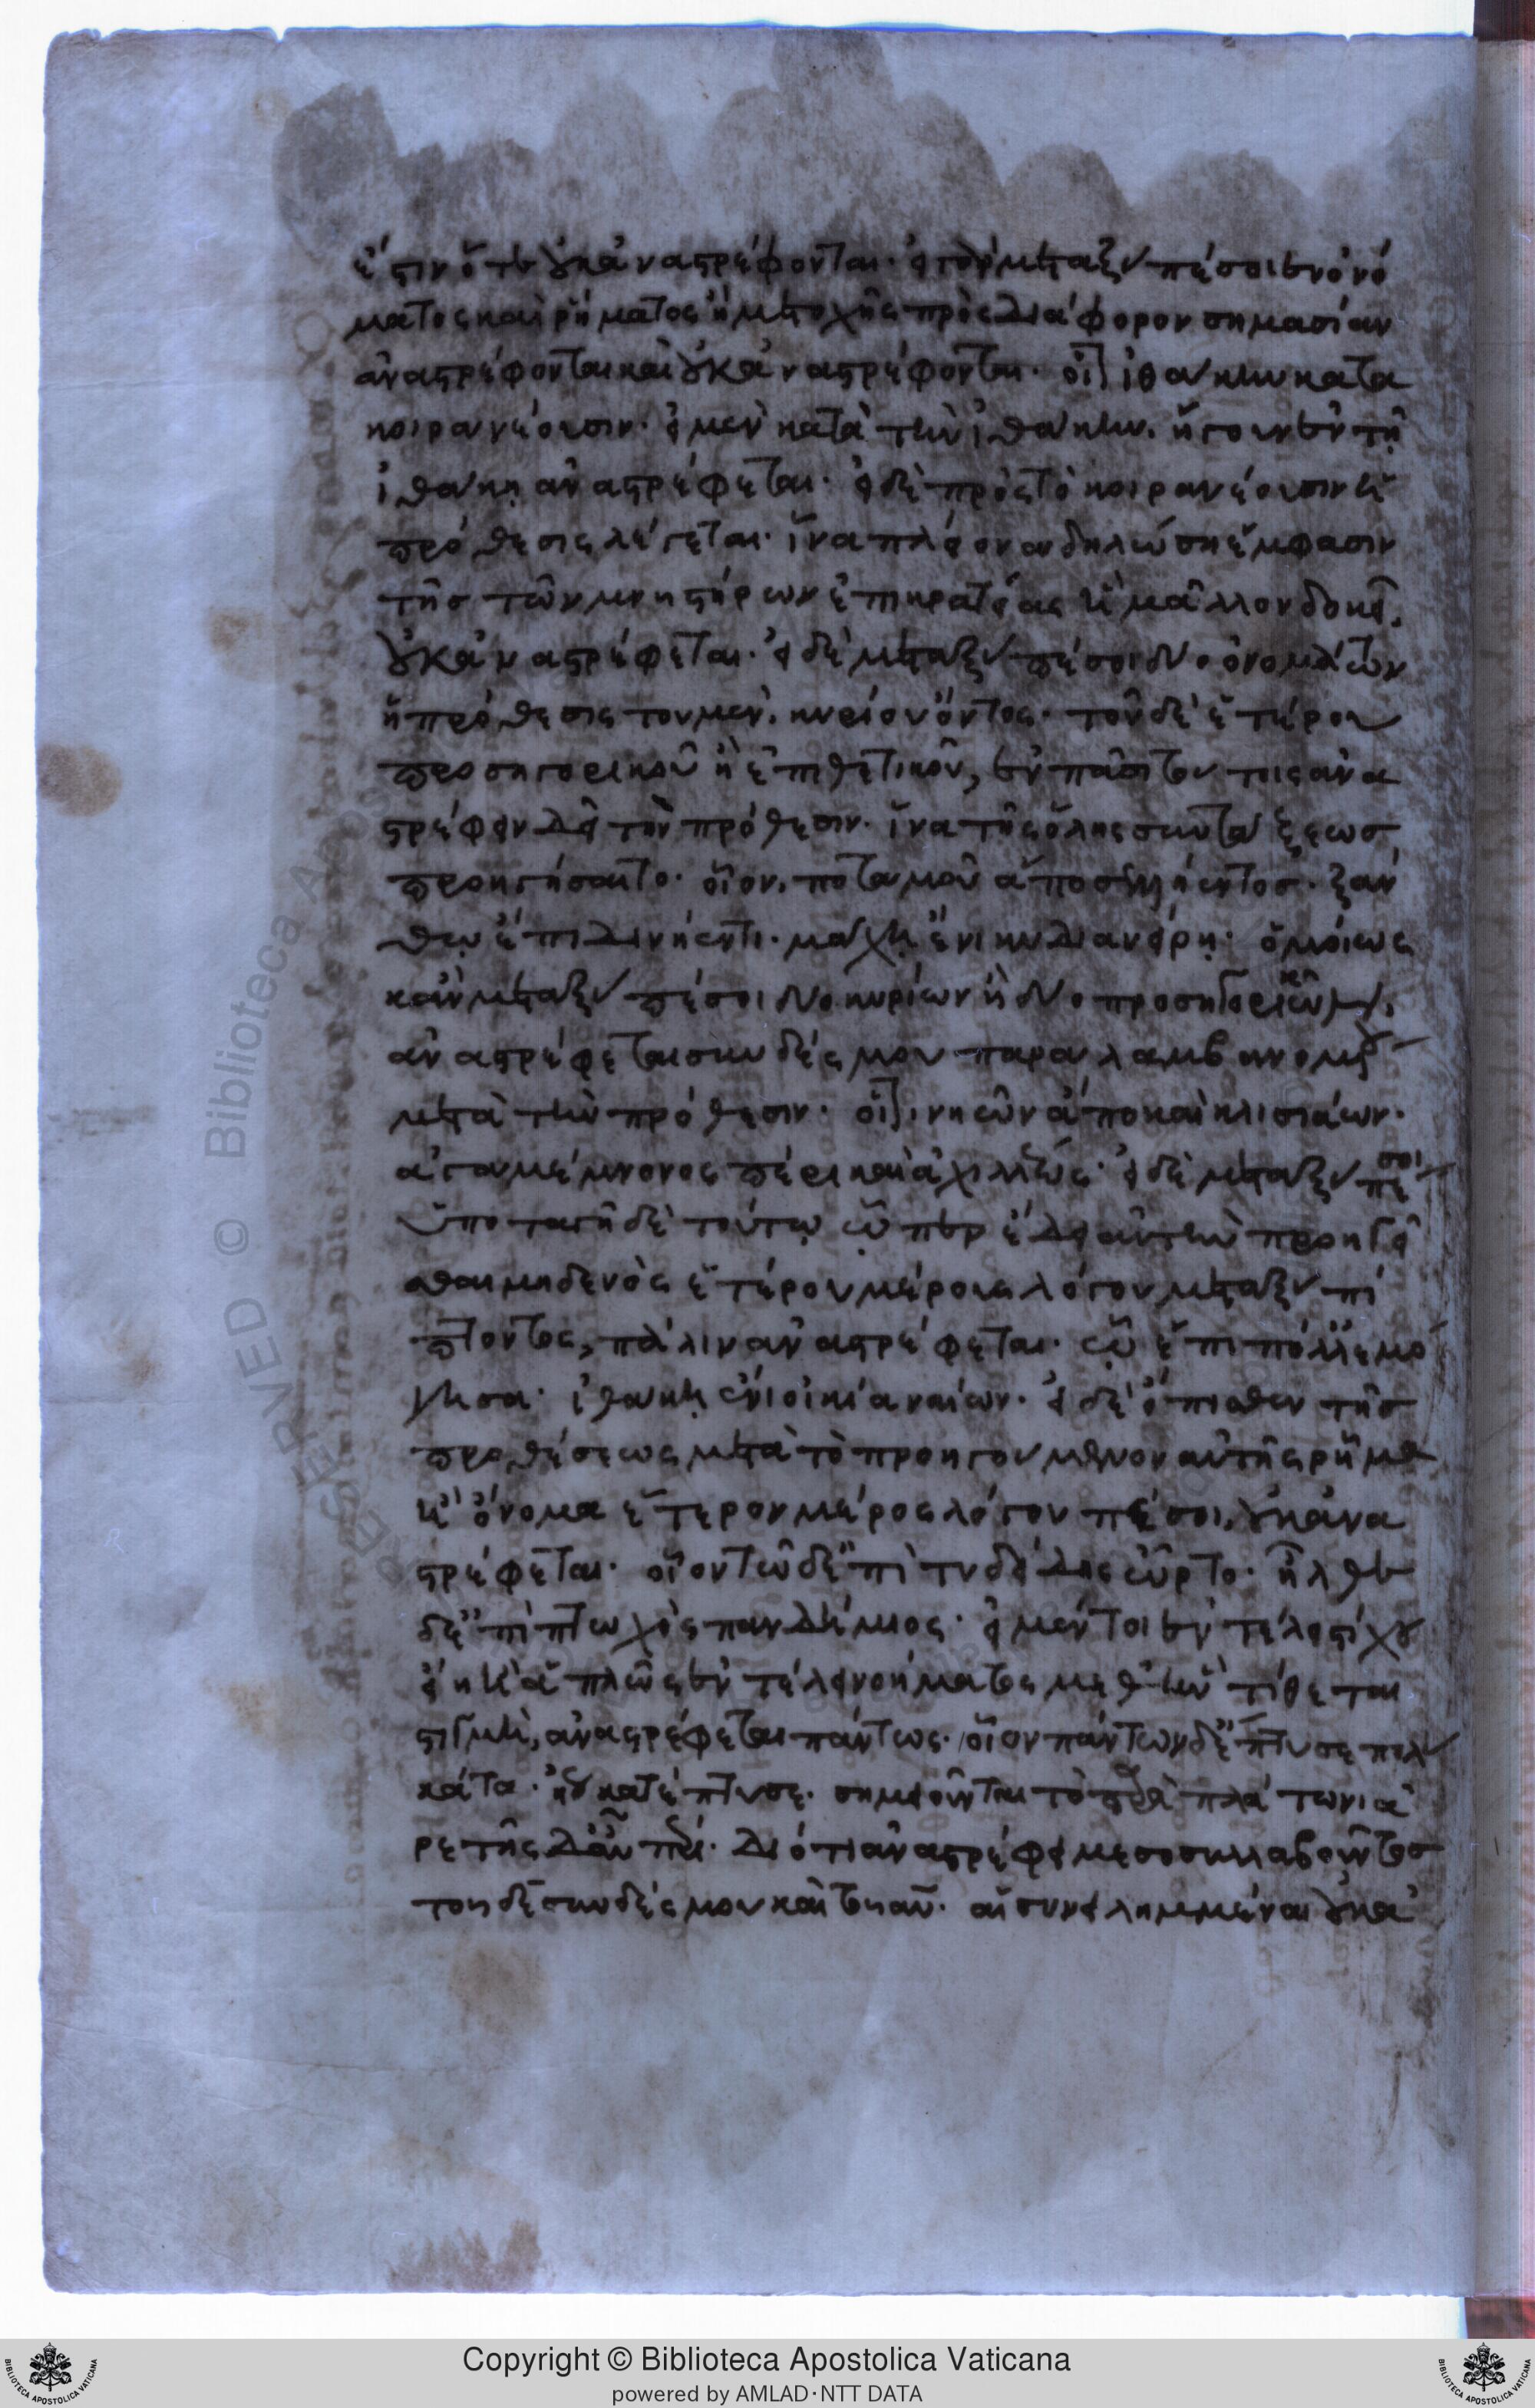 ἔστιν ὅτε οὐκ ἀναστρέφονται· εἰ γὰρ μεταξὺ πέσοιεν ὀνό
ματος καὶ ῥήματος ἢ μετοχῆς πρὸς διάφορον σημασίαν
ἀναστρέφονται καὶ οὐκ ἀναστρέφονται· οἷον ἰθάκην κατα
κοιρανέουσιν· εἰ μὲν κατὰ τὴν ἰθάκην, ἤγουν ἐν τῇ
ἰθάκῃ ἀναστρέφεται· εἰ δὲ πρὸς τὸ κοιρανέουσιν ἡ
πρόθεσις λέγεται· ἵνα πλείονα δηλώσῃ ἔμφασιν
τῆς τῶν μνηστήρων ἐπικρατείας ἣ μᾶλλον δοκεῖ,
οὐκ ἀναστρέφεται· εἰ δὲ μεταξὺ πέσοι δύο ὀνομάτων
ἡ πρόθεσις του μὲν, κυρίου ὄντος· τοῦ δὲ ἑτέρου
προσηγορικοῦ ἢ ἐπιθετικοῦ, ἐν πᾶσι τούτοις ἀνα
στρέφειν δεῖ τὴν πρόθεσιν· ἵνα τῆς ὅλης συντάξεως
προηγήσαιτο· οἷον, ποταμοῦ ἄπο σελλήεντος· ξάν
θῳ ἔπι δινήεντι· μάχῃ ἔνι κυδιανείρῃ· ὁμοίως
κἂν μεταξὺ πέσοι δύο κυρίων ἢ δύο προσηγορικῶν,
ἀναστρέφεται συνδέσμου παραλαμβανομένου
μετὰ τὴν πρόθεσιν· οἷον, νηῶν ἄπο καὶ κλισιάων·
ἀγαμέμνονος πέρι καὶ ἀχιλλέως· εἰ δὲ μεταξὺ πέσοι
ὑποταγῇ δὲ τούτῳ ᾧπερ ἔδει αὐτὴν προηγεῖ
σθαι μηδενὸς ἑτέρου μέρους λόγου μεταξὺ πί
πτοντος, πάλιν ἀναστρέφεται· ᾧ ἔπι πόλλ' ἐμό
γησα· ἰθάκῃ ἔνι οἰκία ναίων· εἰ δὲ ὄπισθεν τῆς
προθέσεως μετὰ τὸ προηγούμενον αὐτῆς ῥῆμα
ἢ ὄνομα ἕτερον μέρος λόγου πέσοι, οὐκ ἀνα
στρέφεται· οἷον τῷ δ' ἐπὶ τυδείδης ὦρτο· ἦλθε
δ' ἐπὶ πτωχὸς πανδήμιος· εἰ μέντοι ἐν τέλει στίχου
εἴη ἢ ἁπλῶς ἐν τέλει νοήματος μεθ' ἣν τίθεται
στιγμὴ, ἀναστρέφεται πάντως· οἷον πάντων δ' ἔπτυσε πουλὺ
κάτα· ἤγουν κατέπτυσε· σημειοῦνται τὸ παρὰ πλάτωνι ἀ
ρετῆς δ' ἂν πέρι· διότι ἀναστρέφει μεσοσυλλαβοῦντος
του δε συνδέσμου καὶ του αν· αἱ συνειλημμέναι οὐκ ἀ